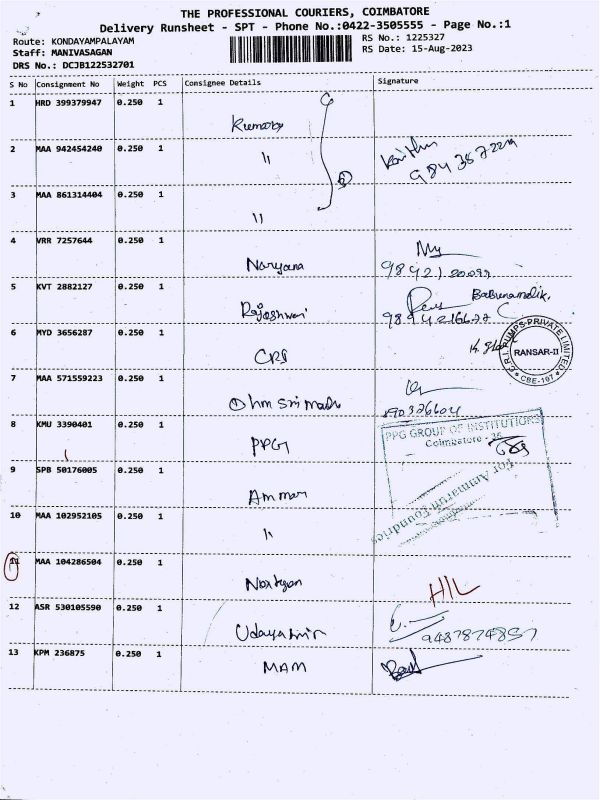 THE PROFESSIONAL COURIERS, COIMBATORE
Delivery Runsheet - SPT - Phone No.:0422-3505555 - Page No.:1
Route: KONDAYAMPALAYAM RS No.: 1225327
Staff: MANIVASAGAN RS Date: 15-Aug-2023
DRS No.: DCJB122532701
S No Consignment No Weight PCS Consignee Details Signature
1 HRD 399379947 0.250 1
2 MAA 942454240 0.250 1 "
3 MAA 861314404 0.250 1 "
4 VRR 7257644 0.250 1 Naryana
5 KVT 2882127 0.250 1 Rajeshwari
6 MYD 3656287 0.250 1 CRI
C.R.I. PUMPS PRIVATE LIMITED
RANSAR-II
CBE-107
7 MAA 571559223 0.250 1
8 KMU 3390401 0.250 1 PPG
PPG GROUP OF INSTITUTIONS
Coimbatore - 35
9 SPB 50176005 0.250 1 Amman
For Ammarun Foundries
10 MAA 102952105 0.250 1 "
11 MAA 104286504 0.250 1 H/L
12 ASR 530105590 0.250 1 9487874857
13 KPM 236875 0.250 1 MAM